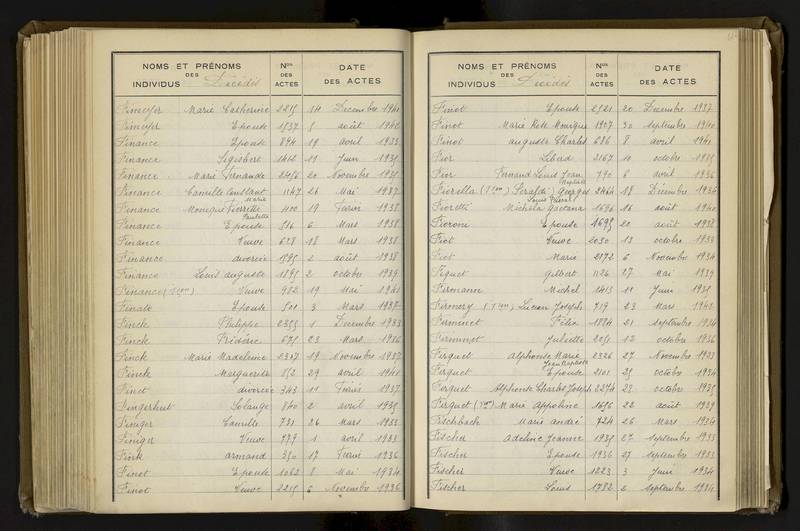 NOMS ET PRÉNOMS
DES
INDIVIDUS Décédés
Nos
DES
ACTES
DATE
DES ACTES
Marie Catherine 2215 14 Décembre 1941
Epouse 1537 5 août 1940
Finance Epouse 894 19 avril 1933
Finance Sigisbert 1414 11 Juin 1935
Finance Marie Fernande 20 Novembre 1935
Finance Camille Constant 1147 26 Mai 1937
Finance Monique Pierrette Marie Paulette 400 19 Février 1938
Finance Epouse 516 6 Mars 1938
Finance Veuve 628 18 Mars 1938
Finance divorcée 1595 2 août 1938
Finance Louis auguste 1895 2 octobre 1939
Finance Veuve 982 19 Mai 1941
Finate Epouse 501 3 Mars 1937
Finck Philippe 2355 1 Décembre 1933
Finck Frédéric 675 23 Mars 1936
Finck Marie Madeleine 2307 19 Novembre 1937
Finck Marguerite 852 29 avril 1941
Finet divorcée 343 11 Février 1937
Fingerhut Solange 840 2 avril 1935
Finiger Camille 731 26 Mars 1933
Finiger Veuve 777 1 avril 1933
Fink armand 350 17 Février 1936
Finot Epouse 1062 8 Mai 1934
Finot Veuve 2215 6 Novembre 1936
NOMS ET PRÉNOMS
DES
INDIVIDUS Décédés
Nos
DES
ACTES
DATE
DES ACTES
Finot Epouse 2521 20 Décembre 1937
Finot Marie Rose Monique 1907 30 septembre 1940
Finot auguste Charles 686 8 avril 1941
Fior 2167 10 octobre 1935
Fior Fernand Louis Jean Baptiste 790 6 avril 1936
Fiorella Serafin Georges 2464 18 Décembre 1936
Fioretti Michela Gaetana 1696 16 août 1940
Fioroni Epouse 1695 20 août 1938
Fiot Veuve 2030 13 octobre 1933
Fiot Marie 2172 6 Novembre 1934
Fiquet Gilbert 1126 27 Mai 1939
Firmann Michel 1413 11 Juin 1935
Lucien Joseph 719 23 Mars 1940
Firminet Félix 1884 21 septembre 1934
Firminet Juliette 2051 12 octobre 1936
Firquet Alphonse Marie Jean Baptiste 2326 27 Novembre 1933
Firquet Epouse 2101 25 octobre 1934
Firquet Alphonse Charles Joseph 2274 23 octobre 1935
Firquet Marie Appoline 1656 22 août 1939
Fischbach Marie andré 724 26 Mars 1934
Fischer Adeline Jeanne 1935 27 septembre 1933
Fischer Epouse 1936 27 septembre 1933
Fischer Veuve 1223 3 Juin 1934
Fischer Louis 1782 2 septembre 1934